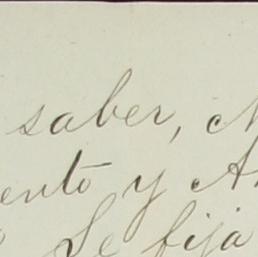 saber,
ento y
Se fija